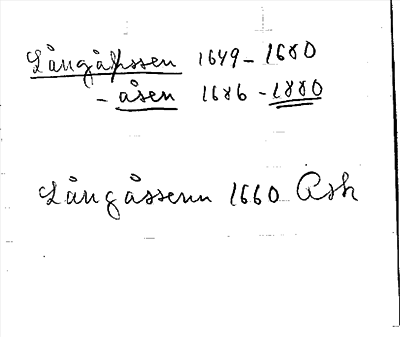 Långåssen 1649-1680
- åsen 1686-1880
Långåssenn 1660 Ask